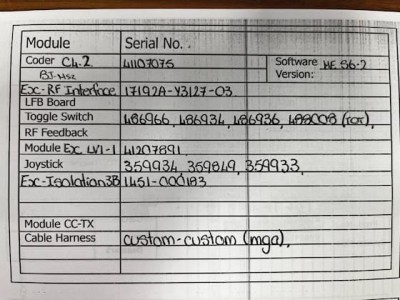 Module Serial No.
Coder C4.2 41107075 Software HE 56-2
BT-NS2 Version:
Exc-RF Interface 17192A-Y3127-03
LFB Board
Toggle Switch 486966, 486934, 486936, 488008 (ror),
RF Feedback
Module Exc LV1-1 41207891
Joystick 359934, 359849, 359933,
Exc-Isolation3B 1451-000183
Module CC-TX
Cable Harness custom-custom (mga),